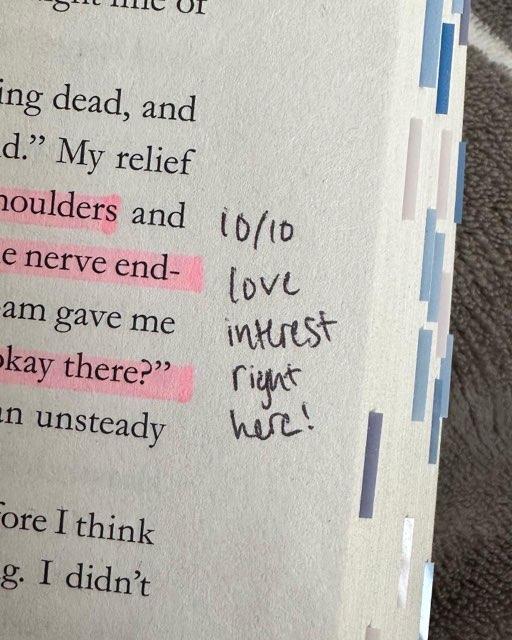 ing dead, and
d.” My relief
houlders and
e nerve end-
am gave me
okay there?”
n unsteady
fore I think
g. I didn’t
10/10
love
interest
right
here!